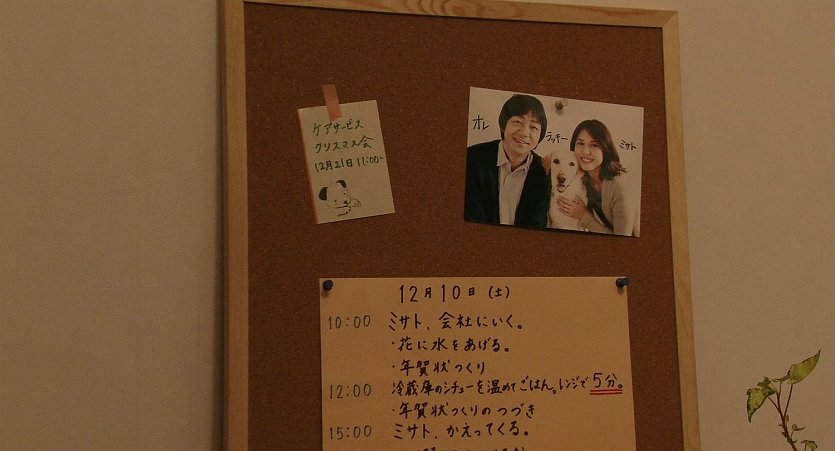 ケアサービス
クリスマス会
12月21日 11:00~
オレ
ラッキー
ミサト
12月10日(土)
10:00 ミサト、会社にいく。
・花に水をあげる。
・年賀状つくり
12:00 冷蔵庫のシチューを温めてごはん。レンジで5分。
・年賀状つくりのつづき
15:00 ミサト、かえってくる。